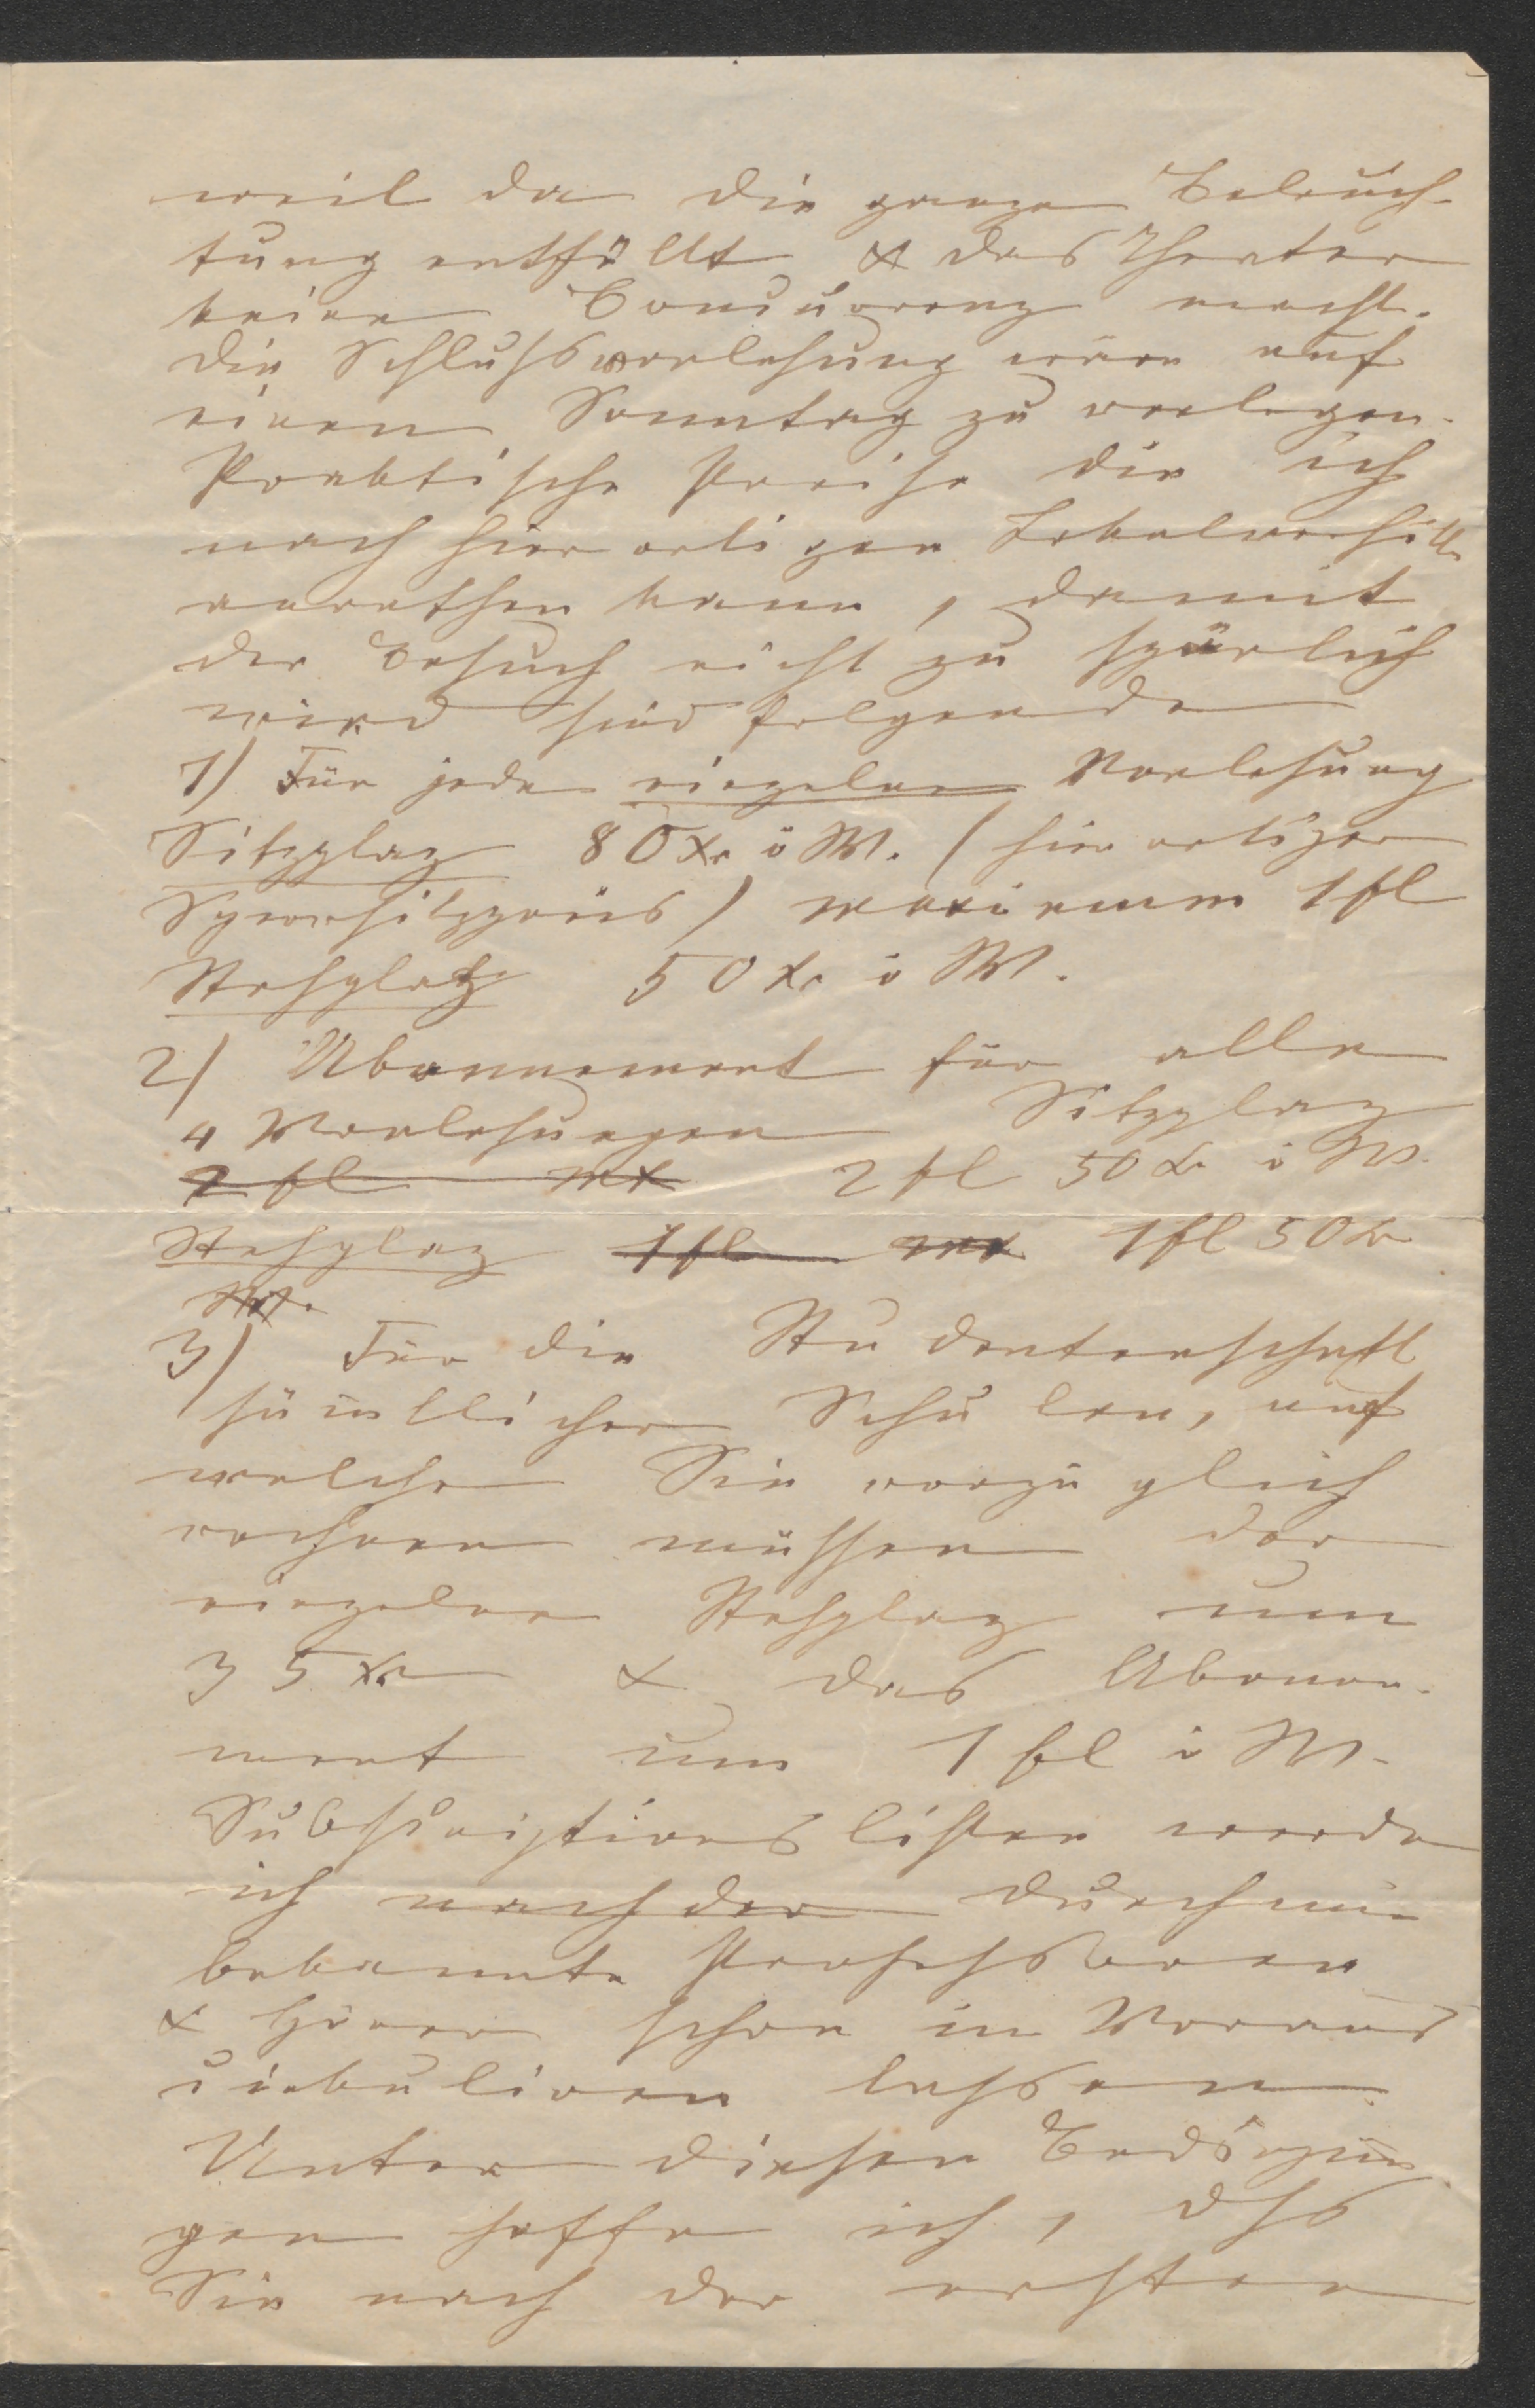 weil da die ganze Beleuch-
tung entfällt & das Theater
keine Concurrenz macht.
Die Schlußvorlesung wäre auf
einen Sonntag zu verlegen.
Praktische Preise die ich
nach hierortigen Lokalverhält.
anrathen kann, damit
der Besuch nicht zu spärlich
wird sind folgende
1) Für jede einzelne Vorlesung
Sitzplaz 80 Xr ö W. (hierortiger
Sperrsitzpreis) maximum 1 fl
Stehplatz 50 Xr ö W.
2) Abonnement für alle
4 Vorlesungen Sitzplaz
2 fl 2 fl 50 Xr ö W.
Stehplaz 1 fl 1 fl 50 Xr
W.
3) Für die Studentenschaft
sämtlicher Schulen, auf
welche Sie vorzüglich
rechnen müssen der
einzelne Stehplaz um
35 Xr & das Abonne-
ment um 1 fl ö W.
Subscriptionslisten werde
ich nach der durch mir
bekannte Professoren
& Hörer schon im Voraus
cirkuliren lassen.
Unter diesen Bedingun-
gen hoffe ich, dß
Sie nach der ersten